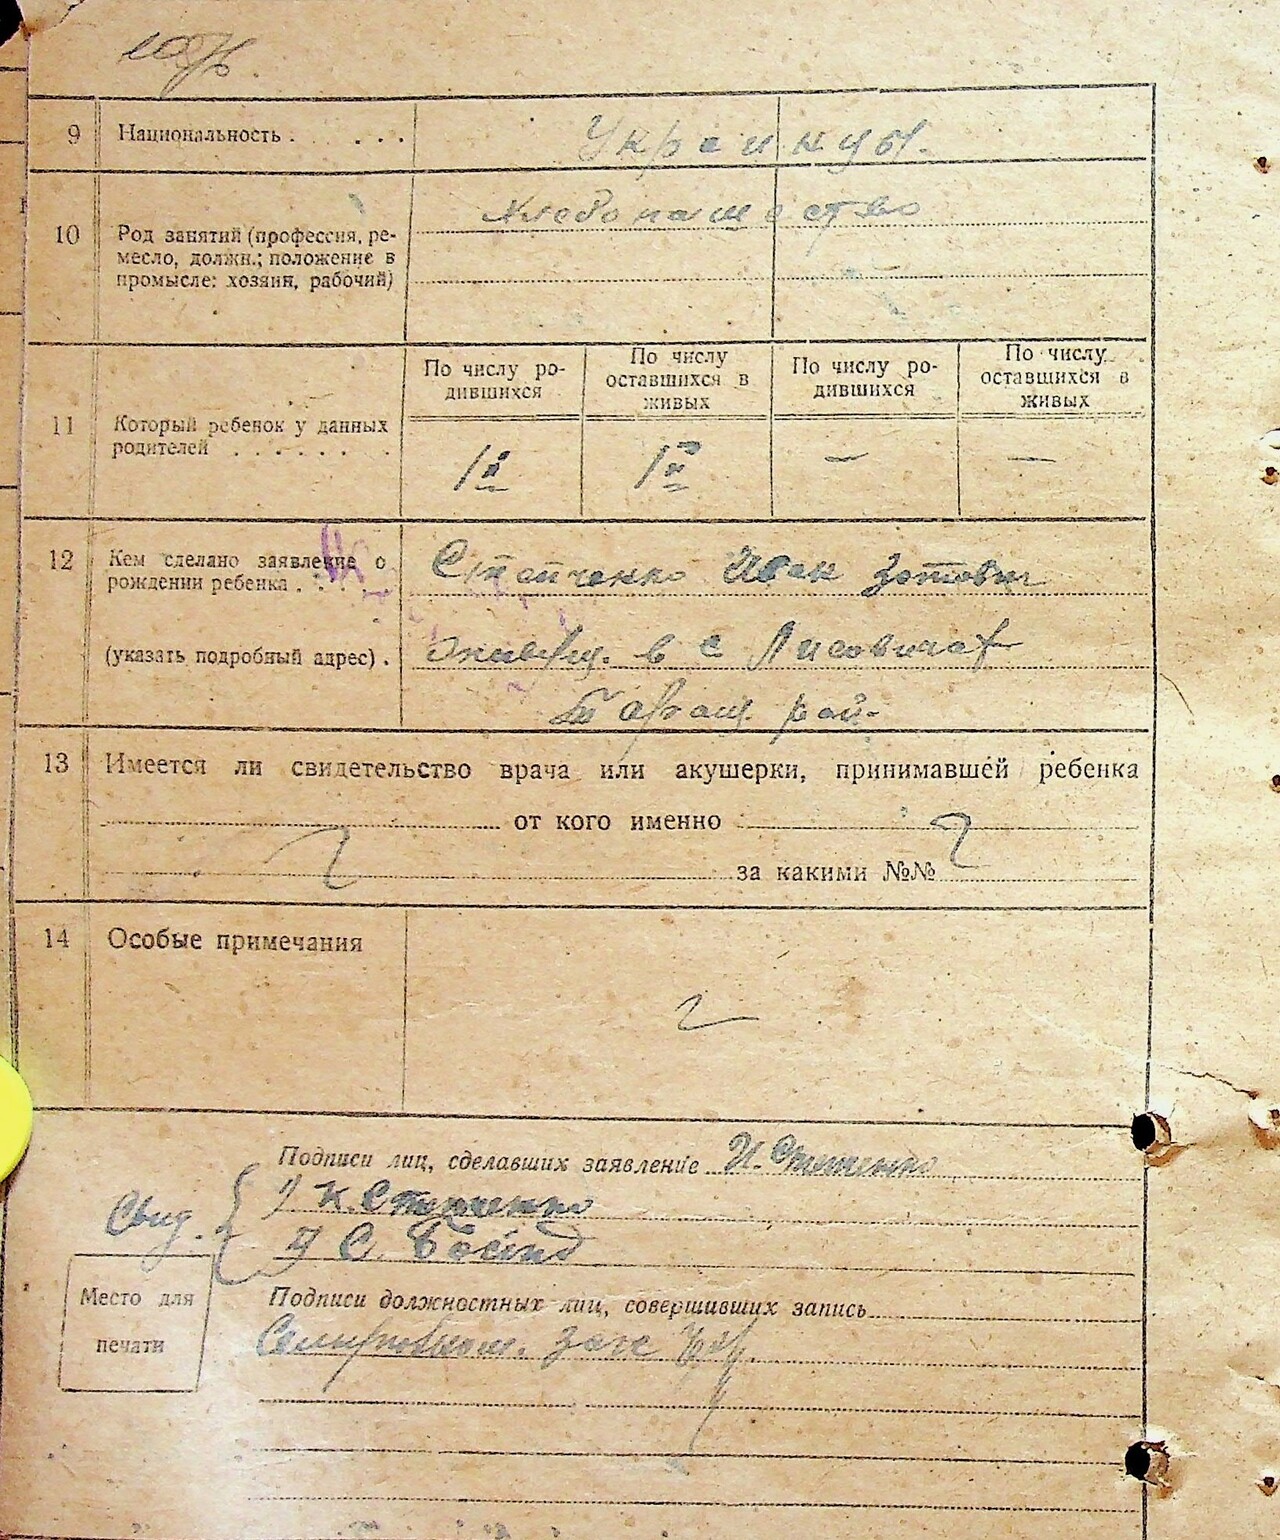 9 Национальность . . . . .
Украинцы.
хлебопашество
10 Род занятий (профессия, ре-
месло, должн.; положение в
промысле: хозяин, рабочий)
По числу ро-
дившихся
По числу
оставшихся в
живых
По числу ро-
дившихся
По числу
оставшихся в
живых
11 Который ребенок у данных
родителей . . . . . . .
1й 1й — —
12 Кем сделано заявление о
рождении ребенка . . . .
Иван Зотович
(указать подробный адрес) .
в с Лисовичах
Таращ. рай-
13 Имеется ли свидетельство врача или акушерки, принимавшей ребенка
от кого именно
за какими №№
14 Особые примечания
Подписи лиц, сделавших заявление И.
Свид. 1) К.
2) С.
Место для
печати
Подписи должностных лиц, совершивших запись
загс